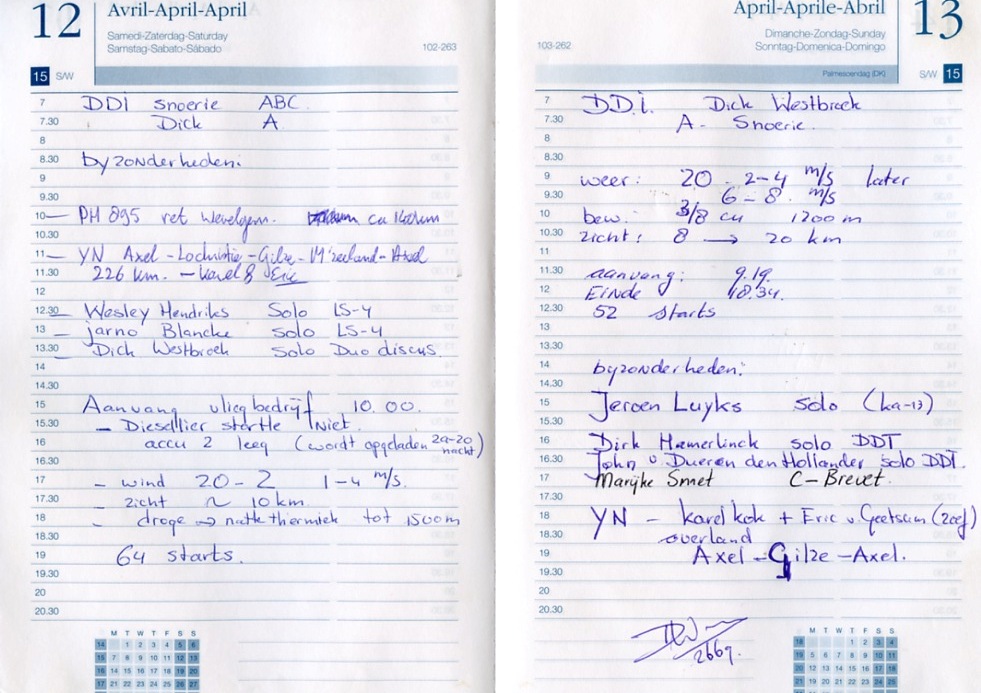 12 Avril-April-April
Samedi-Zaterdag-Saturday
Samstag-Sabato-Sábado
102-263
15 S/W
7 DDI Snoerie ABC.
7.30 Dick A.
8
8.30 byzonderheden:
9
9.30
10 — PH 895 ret Wevelgem. ca
10.30
11 — YN Axel - - Gilze - - Axel
11.30 226 km. - karel & Eric
12
12.30 — Wesley Hendriks Solo LS-4
13 — Jarno Blancke Solo LS-4
13.30 — Dick Westbroek Solo Duo discus.
14
14.30
15 Aanvang vliegbedrijf 10.00.
15.30 - Diesellier startte Niet.
16 accu 2 leeg (wordt opgeladen za-zo nacht)
16.30
17 - wind 20 - 2 1-4 m/s.
17.30 - zicht ~ 10 km.
18 - droge → natte thermiek tot 1500m
18.30
19 64 starts.
19.30
20
20.30
M T W T F S S
14 1 2 3 4 5 6
15 7 8 9 10 11 12 13
16 14 15 16 17 18 19 20
17 21 22 23 24 25 26 27
April-Aprile-Abril 13
Dimanche-Zondag-Sunday
Sonntag-Domenica-Domingo
103-262
Palmesoendag (DK)
S/W 15
7 D.D.i. Dick Westbroek
7.30 A - Snoerie.
8
8.30
9 weer: 20 - 2-4 m/s later
9.30 6 - 8. m/s
10 bew. 3/8 cu 1200 m
10.30 zicht: 8 → 20 km
11
11.30 aanvang: 9.19.
12 Einde 18.34.
12.30 52 starts
13
13.30
14 byzonderheden:
14.30
15 Jeroen Luyks solo (ka-13)
15.30
16 Dirk Hamerlinck solo DDT
16.30 John v. Dueren den Hollander solo DDT.
17 Marijke Smet C-Brevet.
17.30
18 YN - karel kok + Eric v.
18.30 overland
19 Axel - Gilze - Axel.
19.30
20
20.30
2669.
M T W T F S S